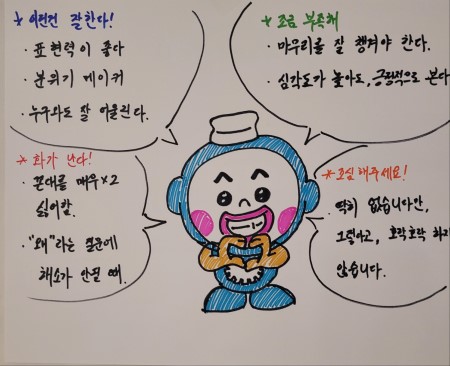 * 이런건 잘한다!
· 표현력이 좋다
· 분위기 메이커
· 누구와도 잘 어울린다.
* 조금 부족해
· 마무리를 잘 챙겨야 한다.
· 심각도가 높아도, 긍정적으로 본다
* 화가 난다!
· 꼰대를 매우×2
싫어함.
· "왜"라는 질문에
해소가 안될 때.
* 조심해주세요!
· 딱히 없습니다만,
그렇다고, 호락호락 하지
않습니다.